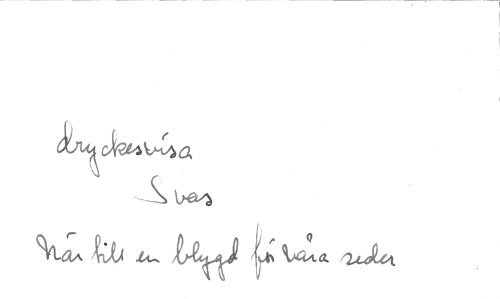 dryckesvisa
Svas
När till en blygd för våra seder